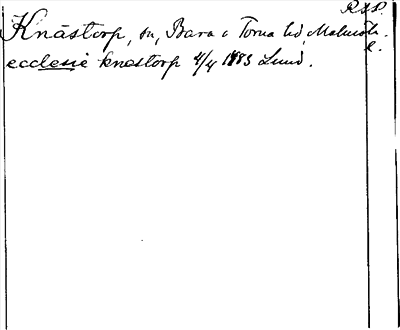 R A P.
Knästorp, sn, Bara o Torna hd, Malmöh. l.
ecclesie knestorp 4/4 1483 Lund.